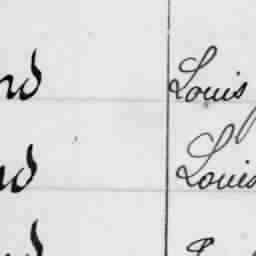 nd Louis
nd Louis
nd